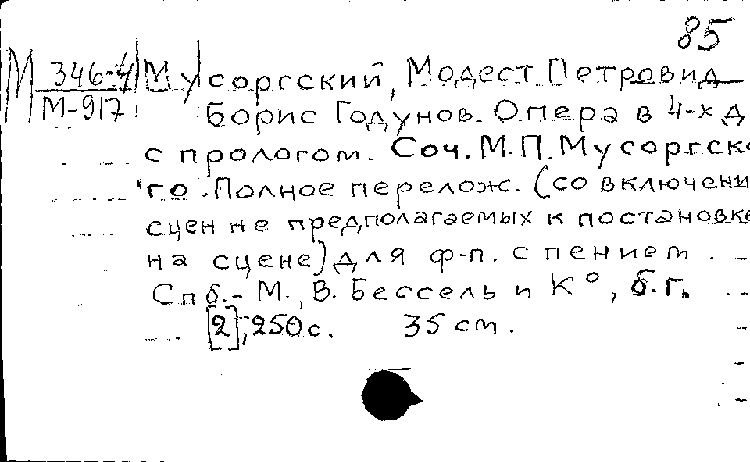 85
М 346-4 Мусоргский, Модест Петрович
М-917 Борис Годунов. Опера в 4-х д
с прологом. Соч. М.П. Мусоргско
го. Полное перелож. (со включени
сцен не предполагаемых к постановке
на сцене) для ф-п. с пением.
Спб.-М., В. Бессель и К°, б.г.
[2], 250 с. 35 см.